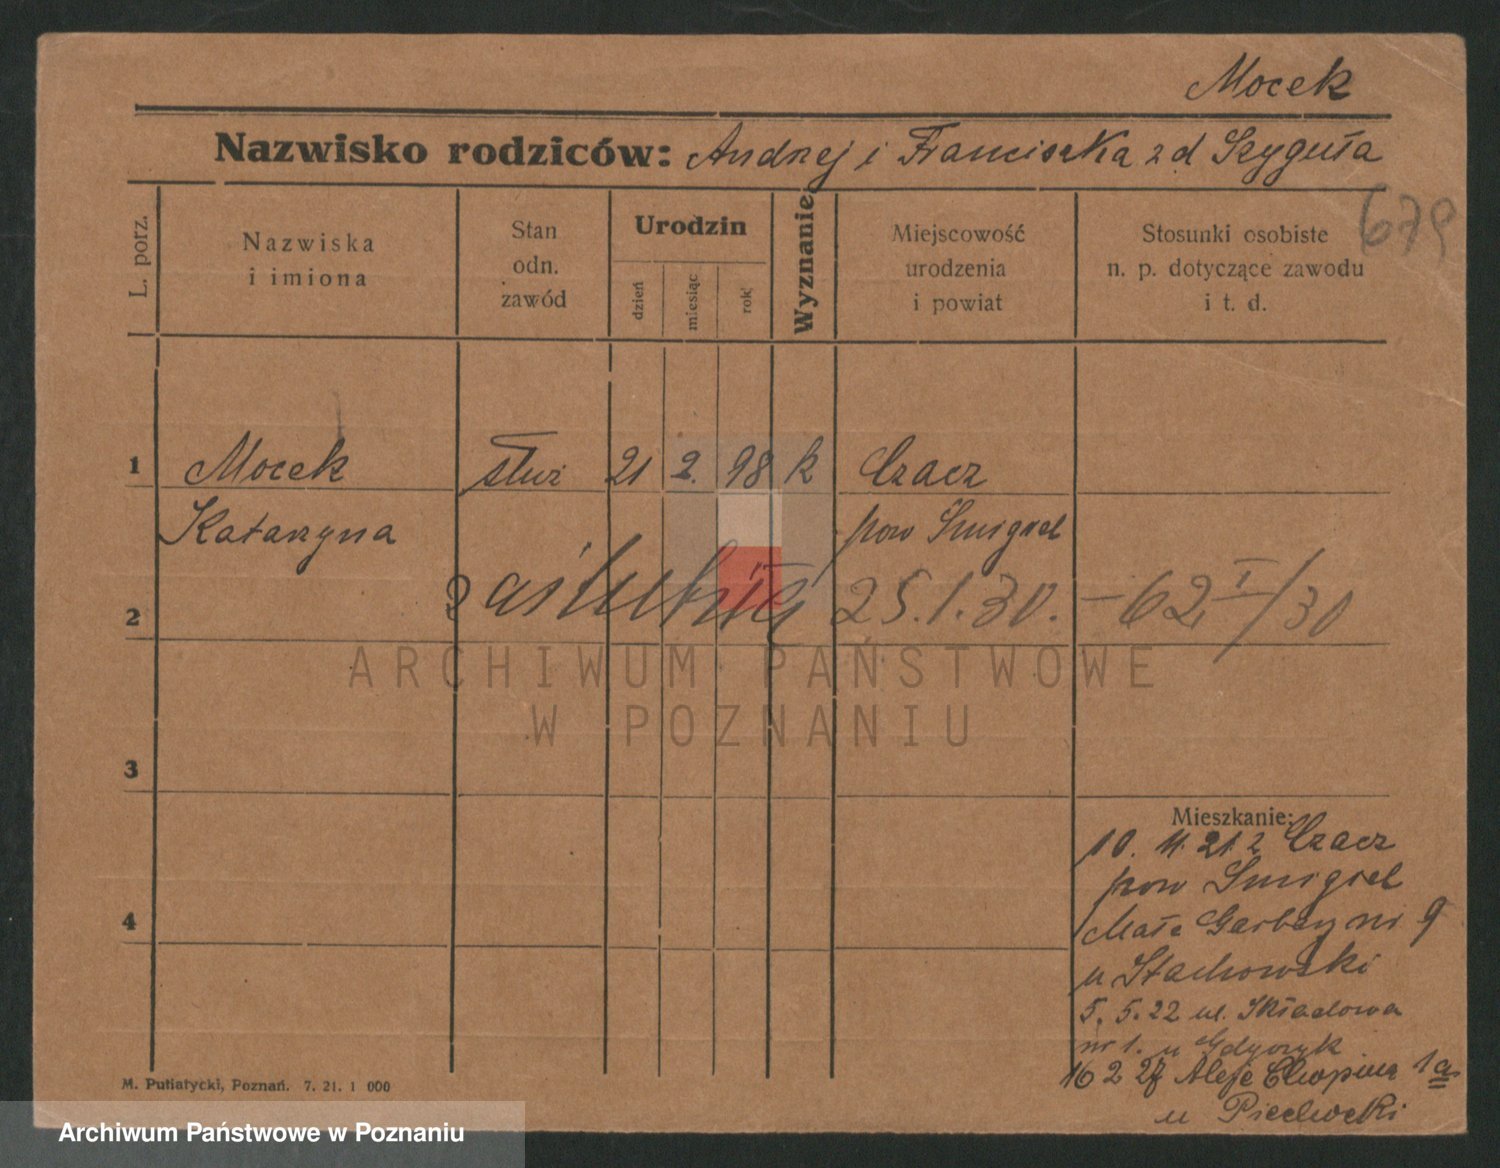 Mocek
Nazwisko rodziców: Andrzej i Franciszka z d Szyguła
679
L. porz.
Nazwiska
i imiona
Stan
odn.
zawód
Urodzin
dzień
miesiąc
rok
Wyznanie
Miejscowość
urodzenia
i powiat
Stosunki osobiste
n. p. dotyczące zawodu
i t. d.
1 Mocek służ 21 2. 98 k Czacz
Katarzyna pow Smigiel
2 zaślubiła 25.1.30. – 62 I/30
ARCHIWUM PAŃSTWOWE
W POZNANIU
3
Mieszkanie:
10. 11. 21. z Czacz
pow Smigiel
4 Małe Garbary nr 9
u Stachowski
5. 5. 22 ul. Składowa
nr 1. u
16 2 27 Aleje Chopina 1a
u Piechocki
M. Putiatycki, Poznań. 7. 21. 1 000
Archiwum Państwowe w Poznaniu